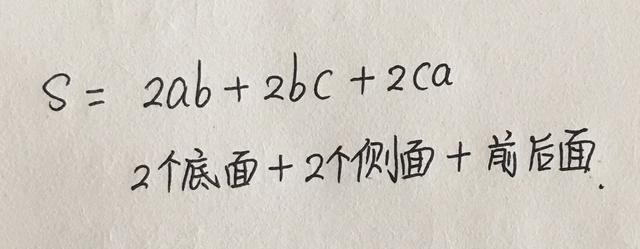 S = 2ab + 2bc + 2ca
2个底面 + 2个侧面 + 前后面.